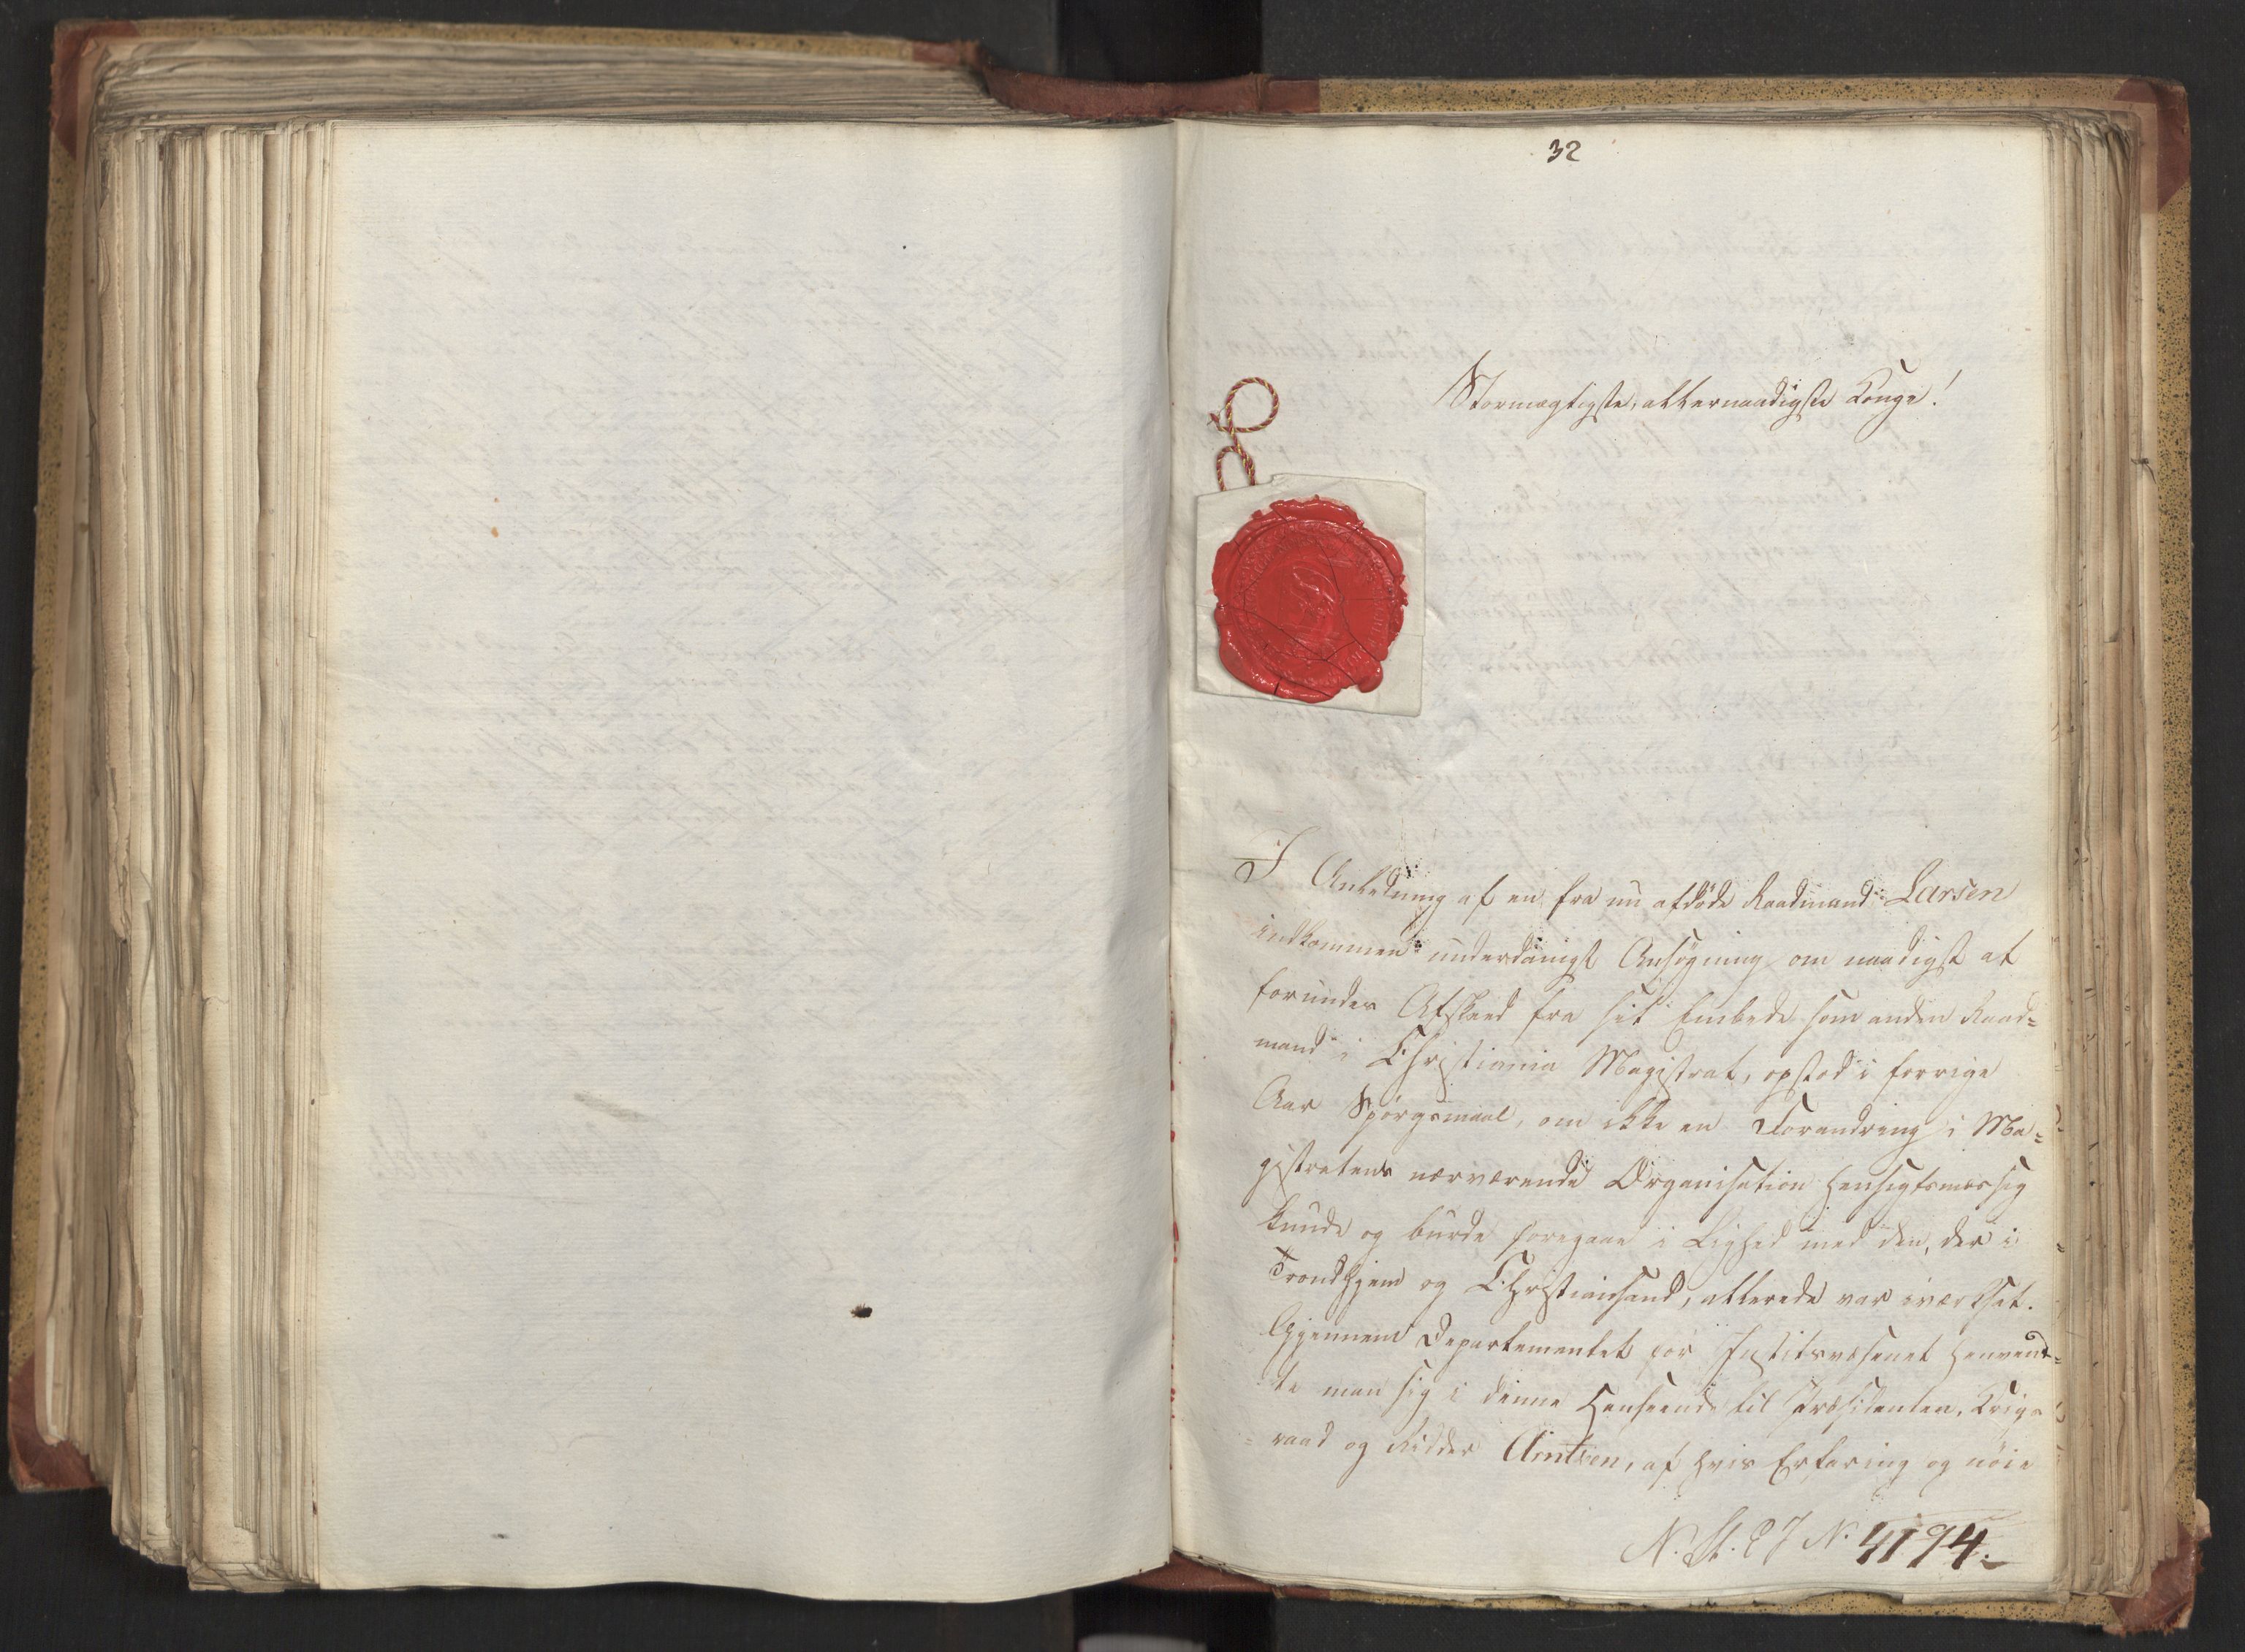 32
Stormægtigste, allernaadigste Konge!
I Anledning af en fra nu afdøde Raadmand Larsen
indkommen underdanigst Ansøgning om naadigst at
forundes Afskeed fra sit Embede som anden Raad=
mand i Christiania Magistrat, opstod i forrige
Aar Spørgsmaal, om ikke en Forandring i Ma=
gistratens nærværende Organisation hensigtsmæssig
kunde og burde foregaae i Lighed med den, der i
Trondhjem og Christiansand, allerede var iværksat.
Gjennem Departementet for Justitsvæsenet henvend=
te man sig i denne Henseende til Præsidenten, Krigs
raad og Ridder Arntzen, af hvis Erfaring og nøie
N. St. E J N. 4194.